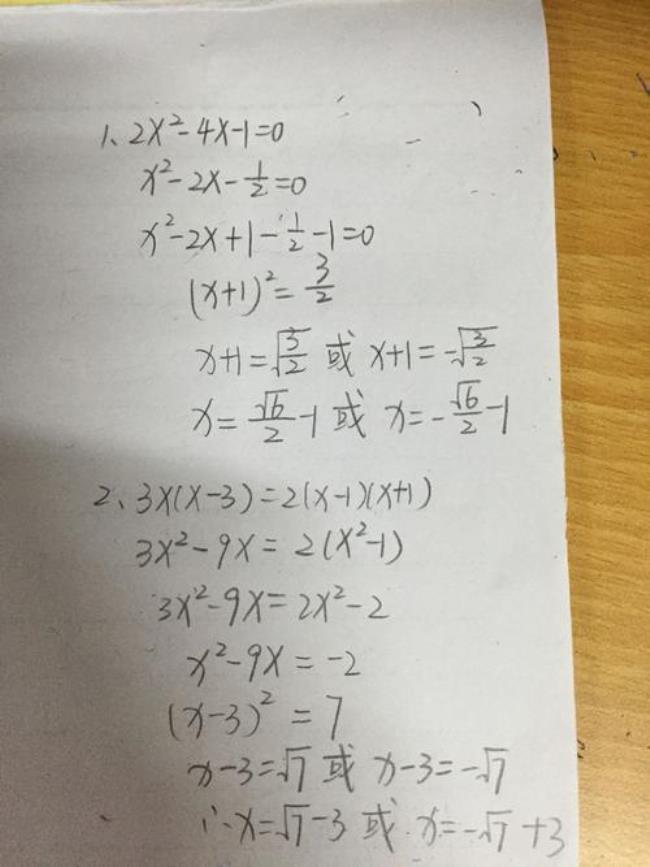 1、2x²-4x-1=0
x²-2x-1/2=0
x²-2x+1-1/2-1=0
(x+1)²=3/2
x+1=√(3/2) 或 x+1=-√(3/2)
x=√6/2-1 或 x=-√6/2-1
2、3x(x-3)=2(x-1)(x+1)
3x²-9x=2(x²-1)
3x²-9x=2x²-2
x²-9x=-2
(x-3)²=7
x-3=√7 或 x-3=-√7
∴x=√7-3 或 x=-√7+3